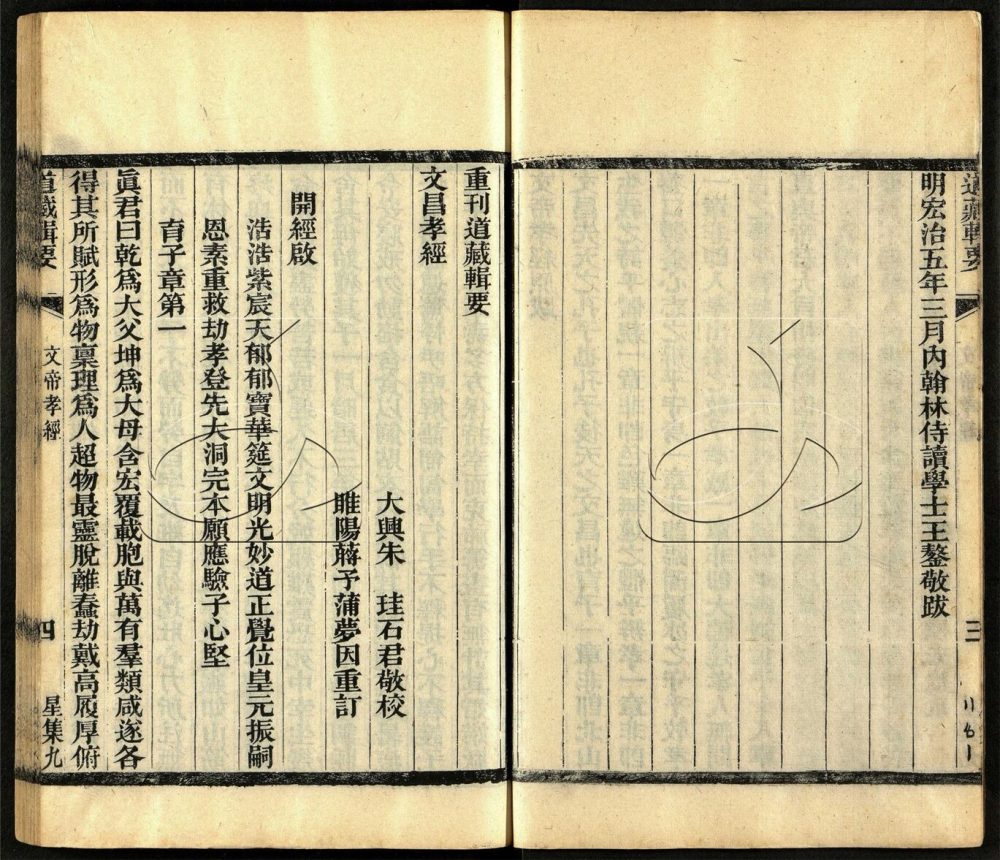 明宏治五年三月內翰林侍讀學士王鏊敬跋
三
重刊道藏輯要
文昌孝經
大興朱　珪石君敬校
睢陽蔣予蒲夢因重訂
開經啟
浩浩紫宸天郁郁寶華筵文明光妙道正覺位皇元振嗣
恩素重救劫孝登先大洞完本願應驗子心堅
育子章第一
眞君曰乾爲大父坤爲大母含宏覆載胞與萬有羣類咸遂各
得其所賦形爲物稟理爲人超物最靈脫離蠢劫戴高履厚俯
道藏輯要
文帝孝經
四
星集九